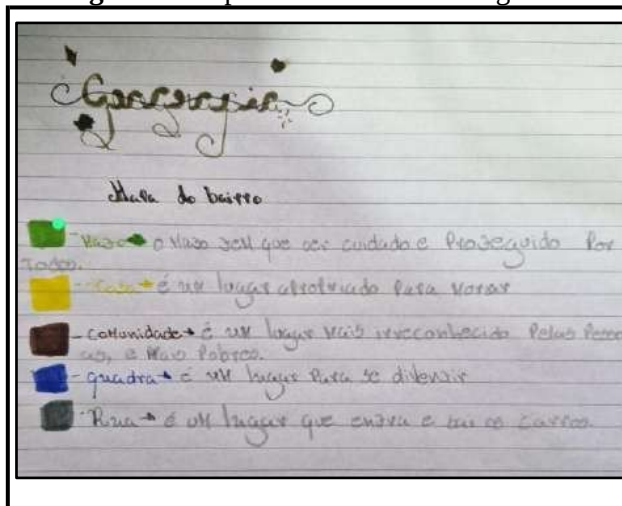 Geografia
Mapa do bairro
o tem que ser cuidado e Proseguido Por
Todos.
Casa → é um lugar apropriado Para morar
- comunidade → é um lugar mais irreconhecido Pelas Pesso
as, e Mais Pobres.
- quadra → é um lugar Para se divenir
- Rua → é um lugar que entra e sai os carros.